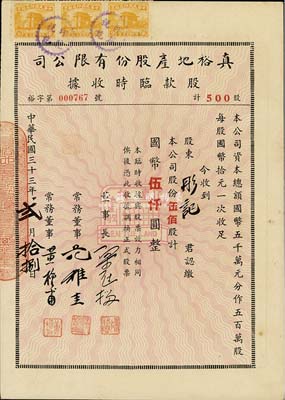 真裕地產股份有限公司
股款臨時收據
裕字第 000767 號
計 500 股
本公司資本總額國幣五千萬元分作五百萬股
每股國幣拾元一次收足
今收到
股東 彤記 君認繳
本公司股份伍佰股計
國幣伍仟圓整
本臨時收據與股票效力相同
俟後憑此收據調換正式股票
董事長
常務董事
常務董事
中華民國三十三年 貳 月 拾捌 日